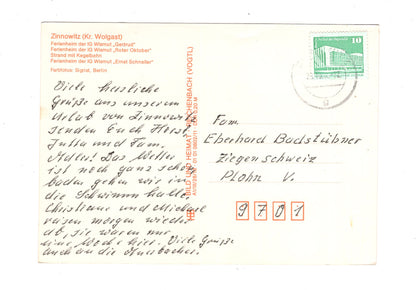 Zinnowitz (Kr. Wolgast)
Ferienheim der IG Wismut „Gertrud"
Ferienheim der IG Wismut „Roter Oktober"
Strand mit Kegelbahn
Ferienheim der IG Wismut „Ernst Schneller"
Farbfotos: Sigrist, Berlin
Viele herzliche
Grüße aus unserem
Urlaub von Zinnowitz
senden Euch Horst,
Jutta und Fam.
Das Wetter
ist noch ganz schön
baden gehen wir in
die Schwimmhalle.
Christiane und Michael
reisen morgen wieder
ab, sie waren nur
eine Woche hier. Viele Grüße
auch an die Auerbacher.
BILD UND HEIMAT REICHENBACH (VOGTL)
10
Fam.
Eberhard Badstübner
Ziegenschweiz
Plohn V.
9701